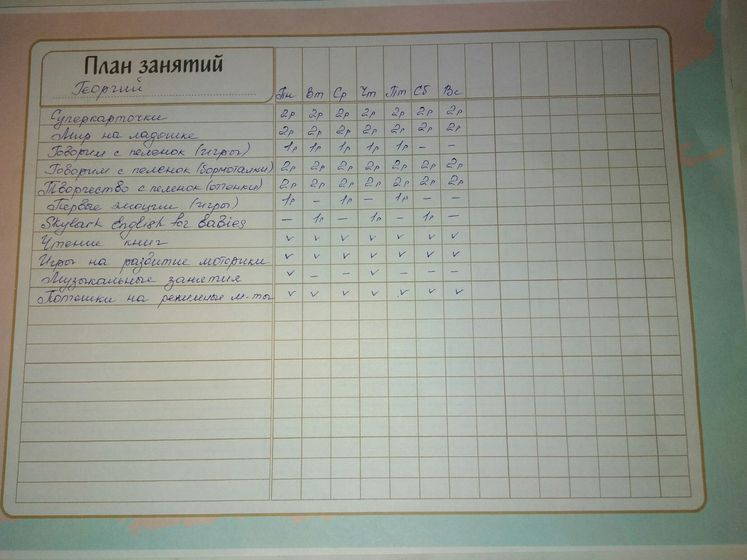 План занятий
Георгий
Пн Вт Ср Чт Пт Сб Вс
Суперкарточки 2р 2р 2р 2р 2р 2р 2р
Мир на ладошке 2р 2р 2р 2р 2р 2р 2р
Говорим с пеленок (игры) 1р 1р 1р 1р 1р – –
Говорим с пеленок (бормоталки) 2р 2р 2р 2р 2р 2р 2р
Творчество с пеленок (оттенки) 2р 2р 2р 2р 2р 2р 2р
Первые эмоции (игры) 1р – 1р – 1р – –
Skylark English for Babies – 1р – 1р – 1р –
Чтение книг v v v v v v v
Игры на развитие моторики v v v v v v v
Музыкальные занятия v – – v – – –
Потешки на режимные м-ты v v v v v v v